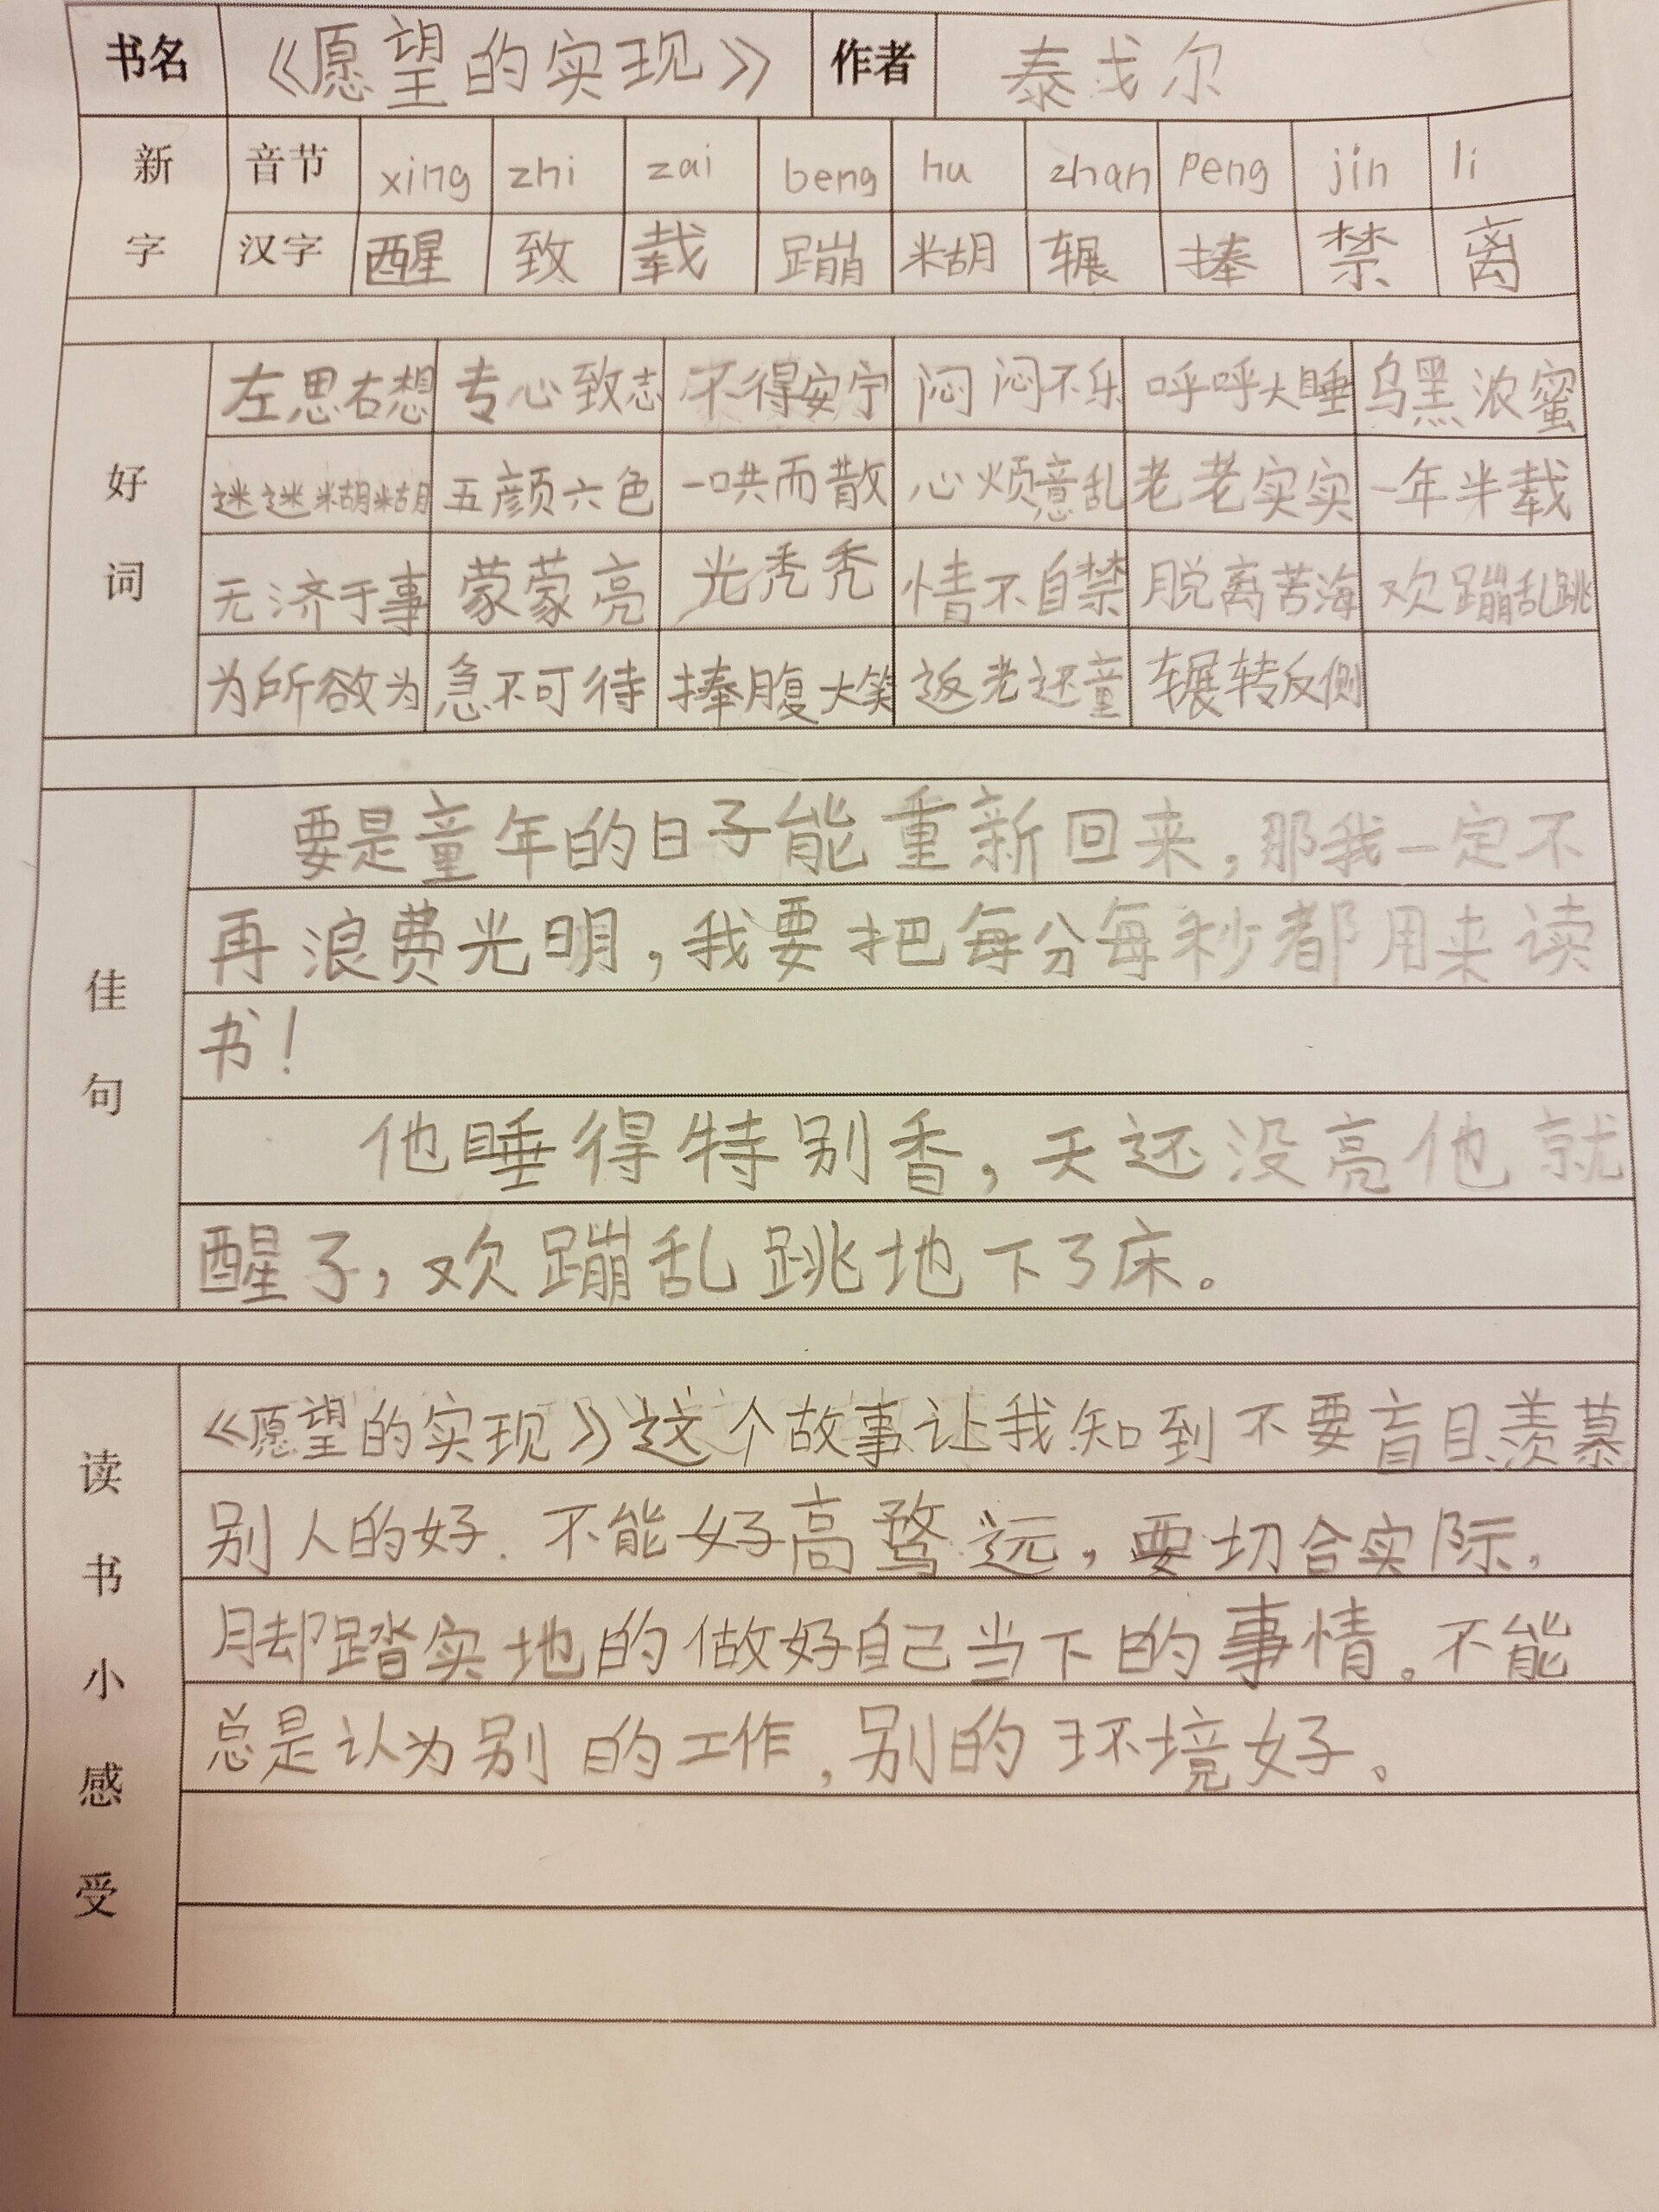 书名 《愿望的实现》 作者 泰戈尔
新字 音节 xing zhi zai beng hu zhan peng jin li
汉字 醒 致 载 蹦 糊 辗 捧 禁 离
好词 左思右想 专心致志 不得安宁 闷闷不乐 呼呼大睡 乌黑浓蜜
迷迷糊糊 五颜六色 一哄而散 心烦意乱 老老实实 一年半载
无济于事 蒙蒙亮 光秃秃 情不自禁 脱离苦海 欢蹦乱跳
为所欲为 急不可待 捧腹大笑 返老还童 辗转反侧
佳句 要是童年的日子能重新回来,那我一定不
再浪费光明,我要把每分每秒都用来读
书!
他睡得特别香,天还没亮他就
醒了,欢蹦乱跳地下了床。
读书小感受 《愿望的实现》这个故事让我知到不要盲目羡慕
别人的好.不能好高骛远,要切合实际,
脚踏实地的做好自己当下的事情。不能
总是认为别的工作,别的环境好。